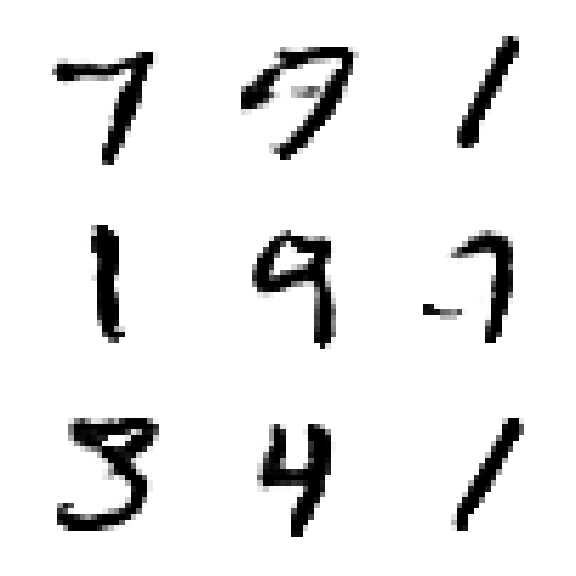 7 1
1 9 7
3 4 1